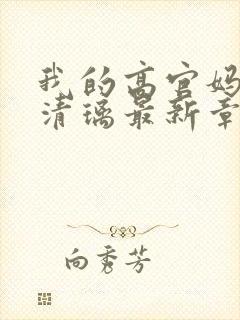 我的高官妈
清璃最新章
向秀芳